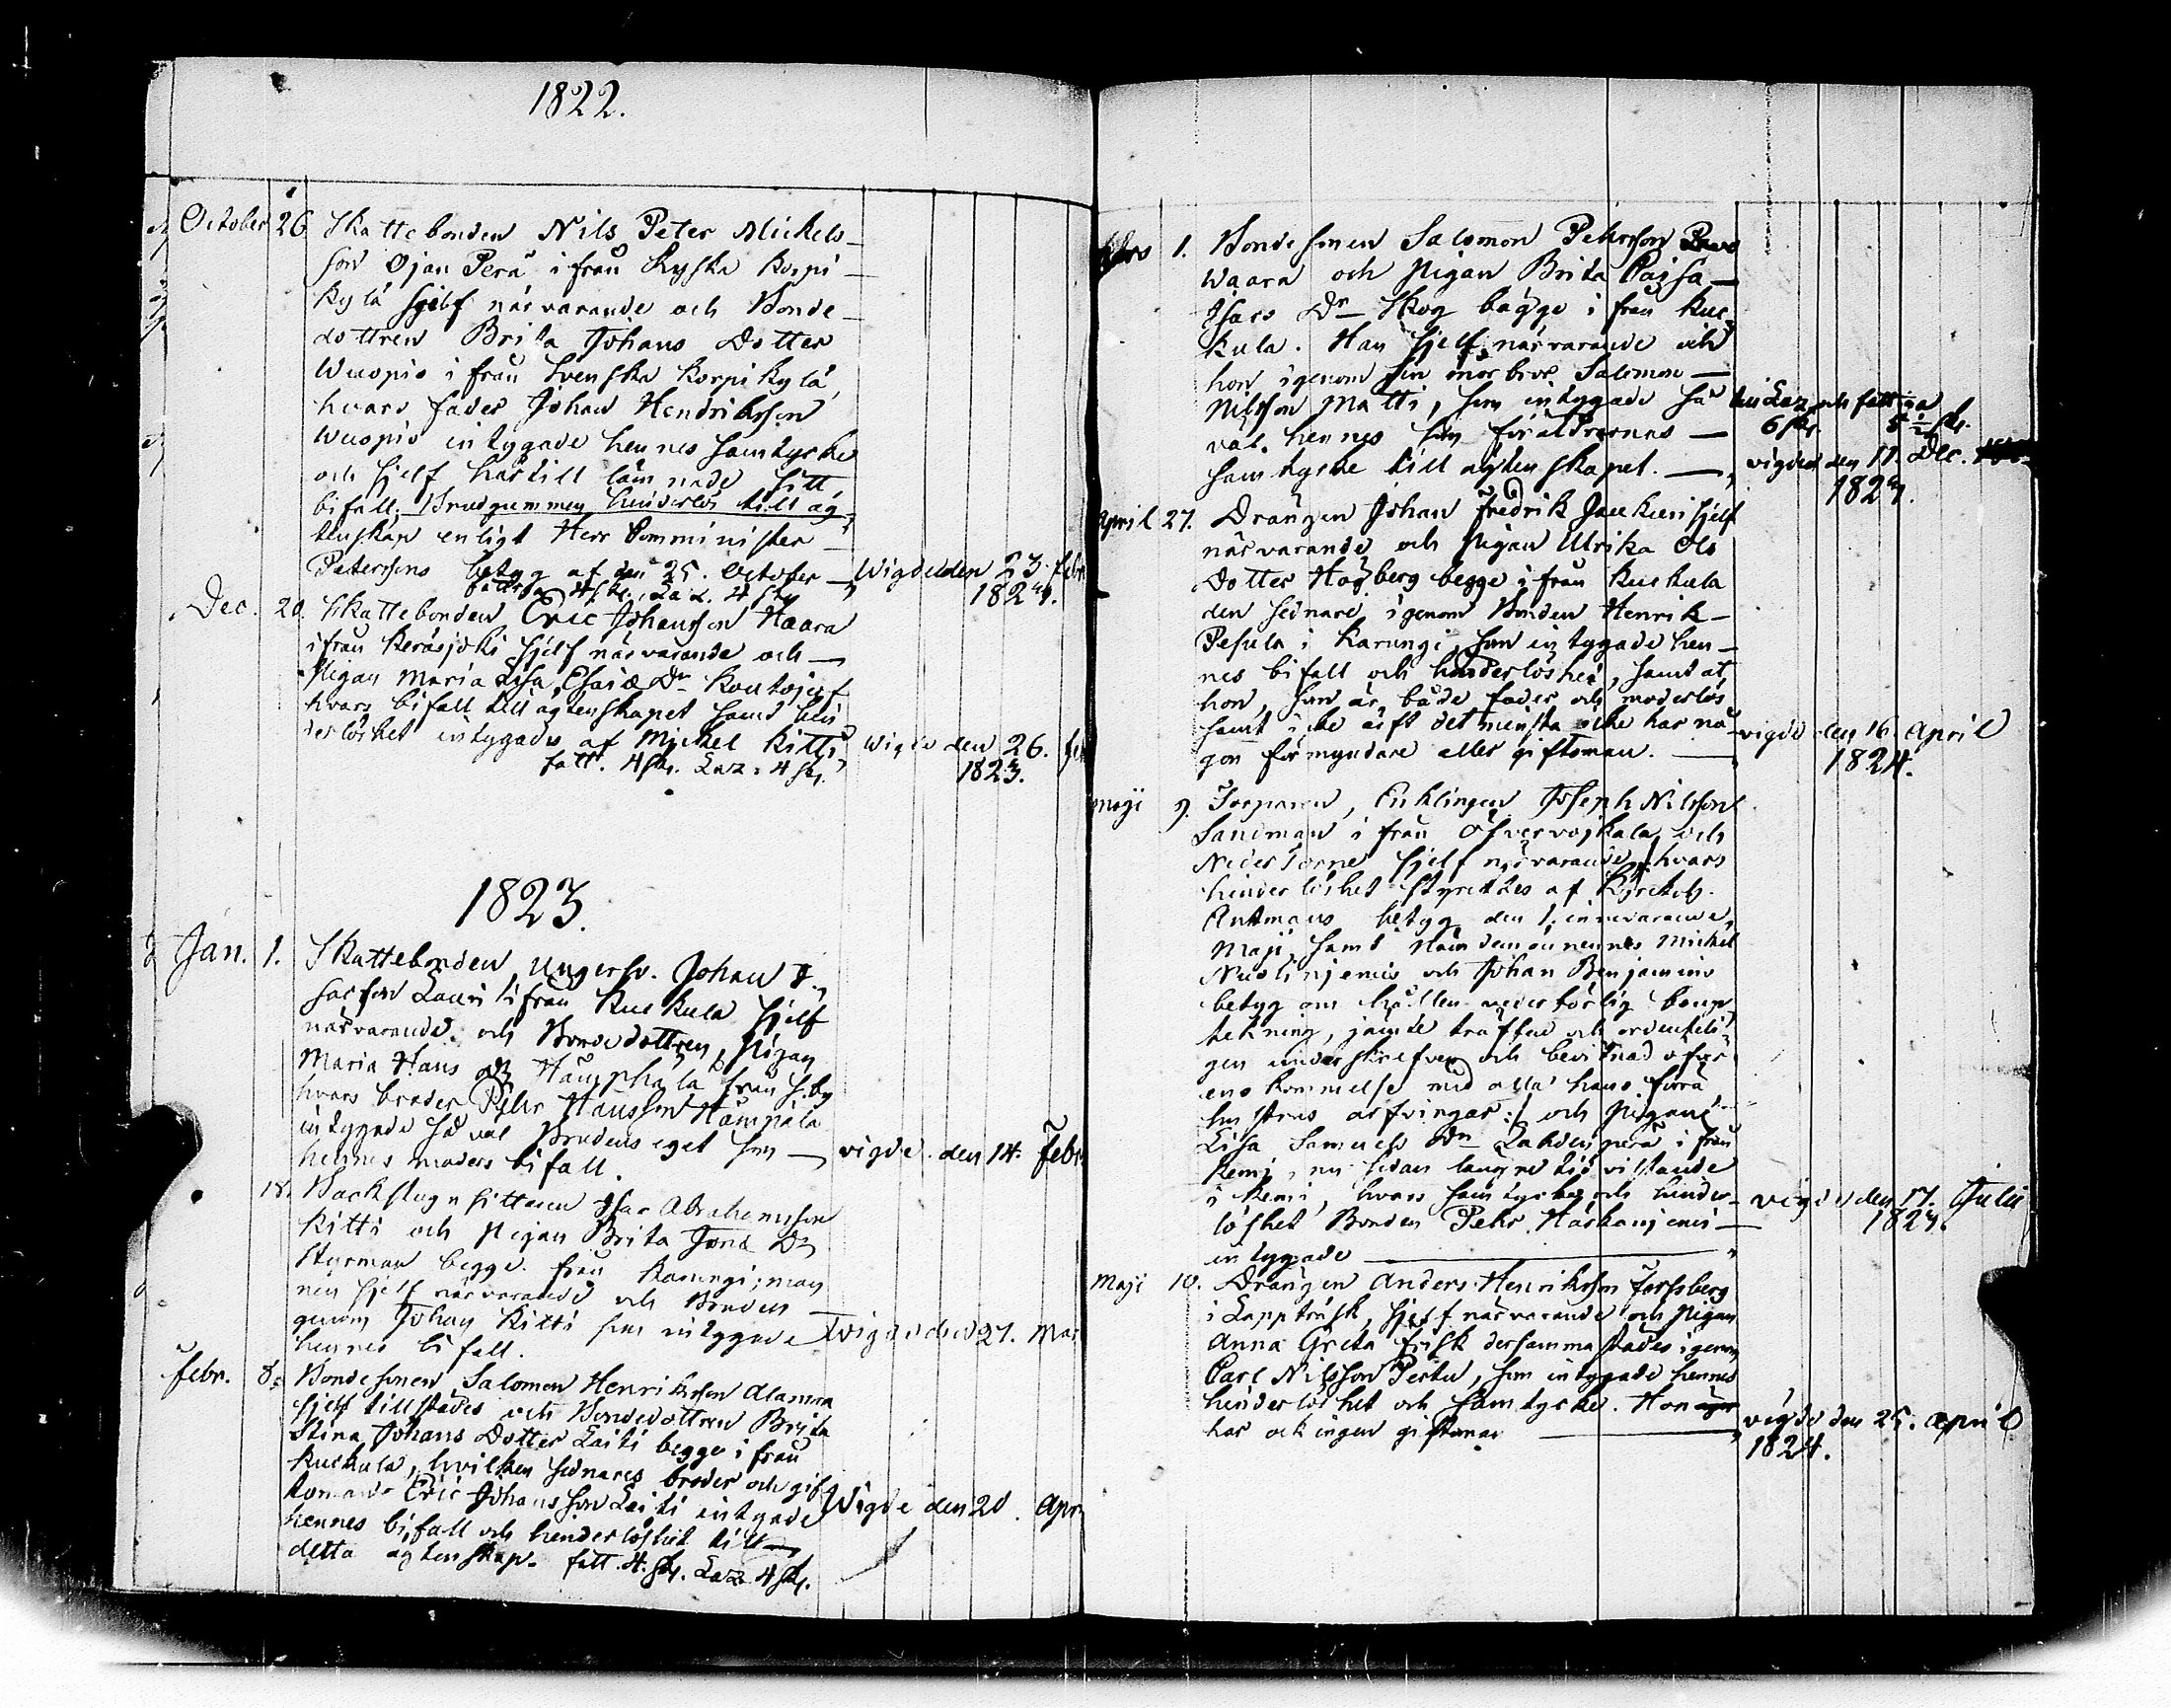 1822.
October 26 Skattebonden Nils Peter Mickels-
son Ojan Perä ifrån Ryska Korpi-
kylä sjelf närvarande och Bonde-
dottren Brita Johans Dotter
Wuopio ifrån Svenska Korpikylä,
hvars fader Johan Hendriksson
Wuopio intygade hennes samtycke
och sjelf härtill lämnade sitt
bifall. Brudgummen hinderlös till äg-
tenskap enligt Herr Comminister
Peterssons betyg af den 25. October
Wigde den 23. Febr.
1823.
fattiga 4 sk. Laz. 4 sk.
Dec. 20. Skattebonden Eric Johansson Haara
ifrån Keräsjoki sjelf närvarande och
Pigan Maria Lisa Esaiæ Dr
hvars bifall till ägtenskapet samt hin-
derlöshet intygades af Mickel Kitti
Wigde den 26.
1823.
fatt. 4 sk. Laz. 4 sk.
1823.
Jan. 1. Skattebonden, Ungersv. Johan I-
sacsson Lauri ifrån Kuckula sjelf
närvarande och Bondedottren, Pigan
Maria Hans Dr Hämphälä från S. by
hvars broder Pehr Hansson Hämpälä
intygade så väl Brudens eget som
hennes moders bifall.
vigde den 14. Febr.
18. Backstugusittaren Isac Abrahamsson
Kitti och Pigan Brita Jons Dr
Styrman begge från Karungi; man-
nen sjelf närvarande och Bruden
genom Johan Kitti som intygade
hennes bifall.
vigde den 27. Mar
Febr. 8. Bondesonen Salomon Henriksson Alamaa
sjelf tillstädes och Bondedottren Brita
Stina Johans Dotter Laiti begge ifrån
Kuckula, hvilken sednares broder och gif-
toman Eric Johansson Laiti intygade
hennes bifall och hinderlöshet till
detta ägtenskap. fatt. 4. sk. Laz. 4 sk.
Wigde den 20. Apr.
1. Bondesonen Salomon Pehrsson
waara och Pigan Brita Cajsa
Isacs Dr Skog bägge ifrån Kuc-
kula. Han sjelf närvarande och
hon igenom sin morbror Salomon
Nilsson Matti, som intygade så
väl hennes som föräldrarnas
samtycke till ägtenskapet.
till Laz. och fattiga
6 sk.
vigde den 11. Dec.
1823.
April 27. Drängen Johan Fredrik Junkuri sjelf
närvarande och Pigan Ulrika Ols
Dotter Hogberg begge ifrån Kuckula
den sednare igenom Bonden Henrik
Pesula i Karungi, som intygade hen-
nes bifall och hinderlöshet, samt at
hon, som är både fader och moderlös
samt icke ärft det minsta icke har nå-
gon förmyndare eller giftoman.
vigde den 16. April
1824.
Maji 9. Torparen, Enklingen Joseph Nilsson
Sandman ifrån Öfvervojakala och
Neder Torne sjelf närvarande, hvars
hinderlöshet styrktes af Kyrkoh.
Antmans betyg den 1. innevarande
Maji, samt Nämdemännernes Michel
Nuotinjemis och Johan Benjamins
betyg om hållen vederbörlig boup-
tekning, jämte träffad och ordenteli-
gen underskrefven och bevitnad öfver-
enskommelse med alla hans förra
hustrus arfvingar :/ och Pigan
Lisa Samuels Dr Lahdenperä ifrån
Kemi, nu sedan längre tid vistande
i Kemi, hvars samtycke och hinder-
löshet Bonden Pehr Harkanjemi
intygade
vigde den 17. Julii
1823.
Maji 10. Drängen Anders Henriksson Forssberg
i Lappträsk, sjelf närvarande och Pigan
Anna Greta Frisk dersammastädes igenom
Carl Nilsson Pertu, som intygade hennes
hinderlöshet och samtycke. Hon
har ock ingen giftoman
vigde den 25. April
1824.